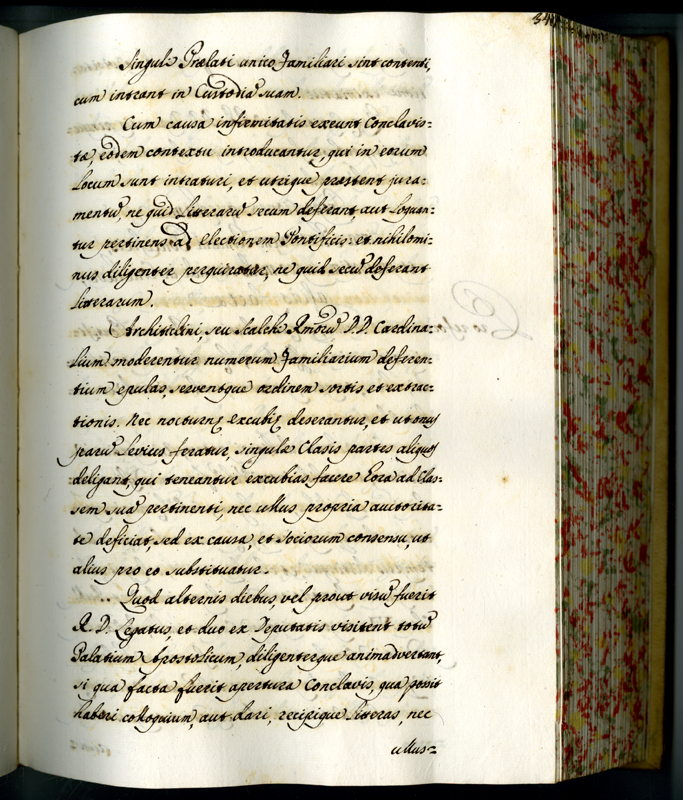 Singuli Prælati unico Familiari sint contenti,
cum intrant in Custodiã suam.
Cum causa infirmitatis exeunt Conclavis=
tæ, eodem contextu introducantur, qui in eorum
Locum sunt intraturi, et utrique præstent jura=
mentũ, ne quid Literarũ secum deferant, aut Loquan=
tur pertinens ad Electionem Pontificis: et nihilomi=
nus diligenter perquiratur, ne quid secũ deferant
Litterarum.
Architriclini, seu Scalchi Rmõrũ D.D. Cardina=
lium moderentur numerum Familiarium deferen=
tium epulas, serventque ordinem sortis, et extrac=
tionis. Nec nocturnę excubię deserantur, et ut onus
parũ Levius feratur, singulæ Clasis partes aliquos
deligant, qui teneantur excubias facere Loca ad Clas=
sem suã pertinenti, nec ullus propria auctorita=
te deficiat, sed ex causa, et Sociorum consensu, ut
alius pro eo substituatur.
Quod alternis diebus, vel prout visũ fuerit
R. D. Legatus, et duo ex Deputatis visitent totũ
Palatium Apostolicum, diligenterque animadvertant,
si qua facta fuerit apertura Conclavis, qua possit
haberi colloquium, aut dari, recipique Litteras, nec
ullus=